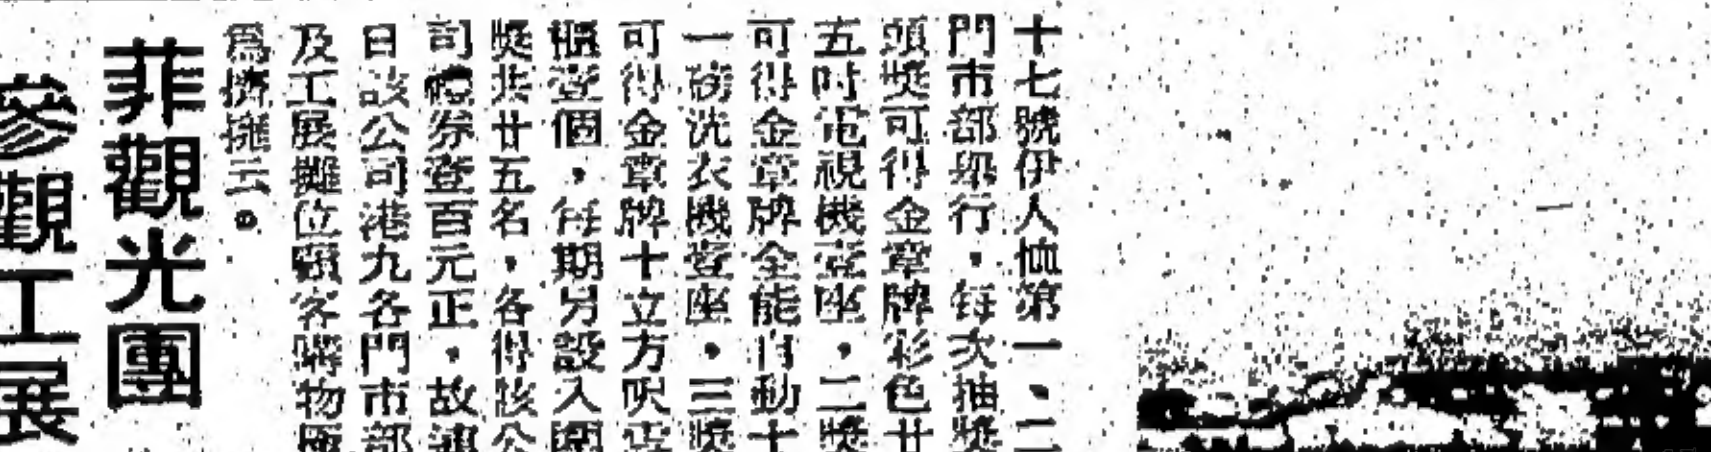 十七號伊人恤第一、二
門市部舉行，每次抽獎
頭獎可得金章牌彩色廿
五吋電視機壹座，二獎
可得金章牌全能自動十
一磅洗衣機壹座，三獎
可得金章牌十立方呎雪
櫃壹個，每期另設入圍
獎共廿五名，各得該公
司禮券壹百元正，故連
日該公司港九各門市部
及工展攤位顧客購物極
為擠擁云。
菲觀光團
參觀工展